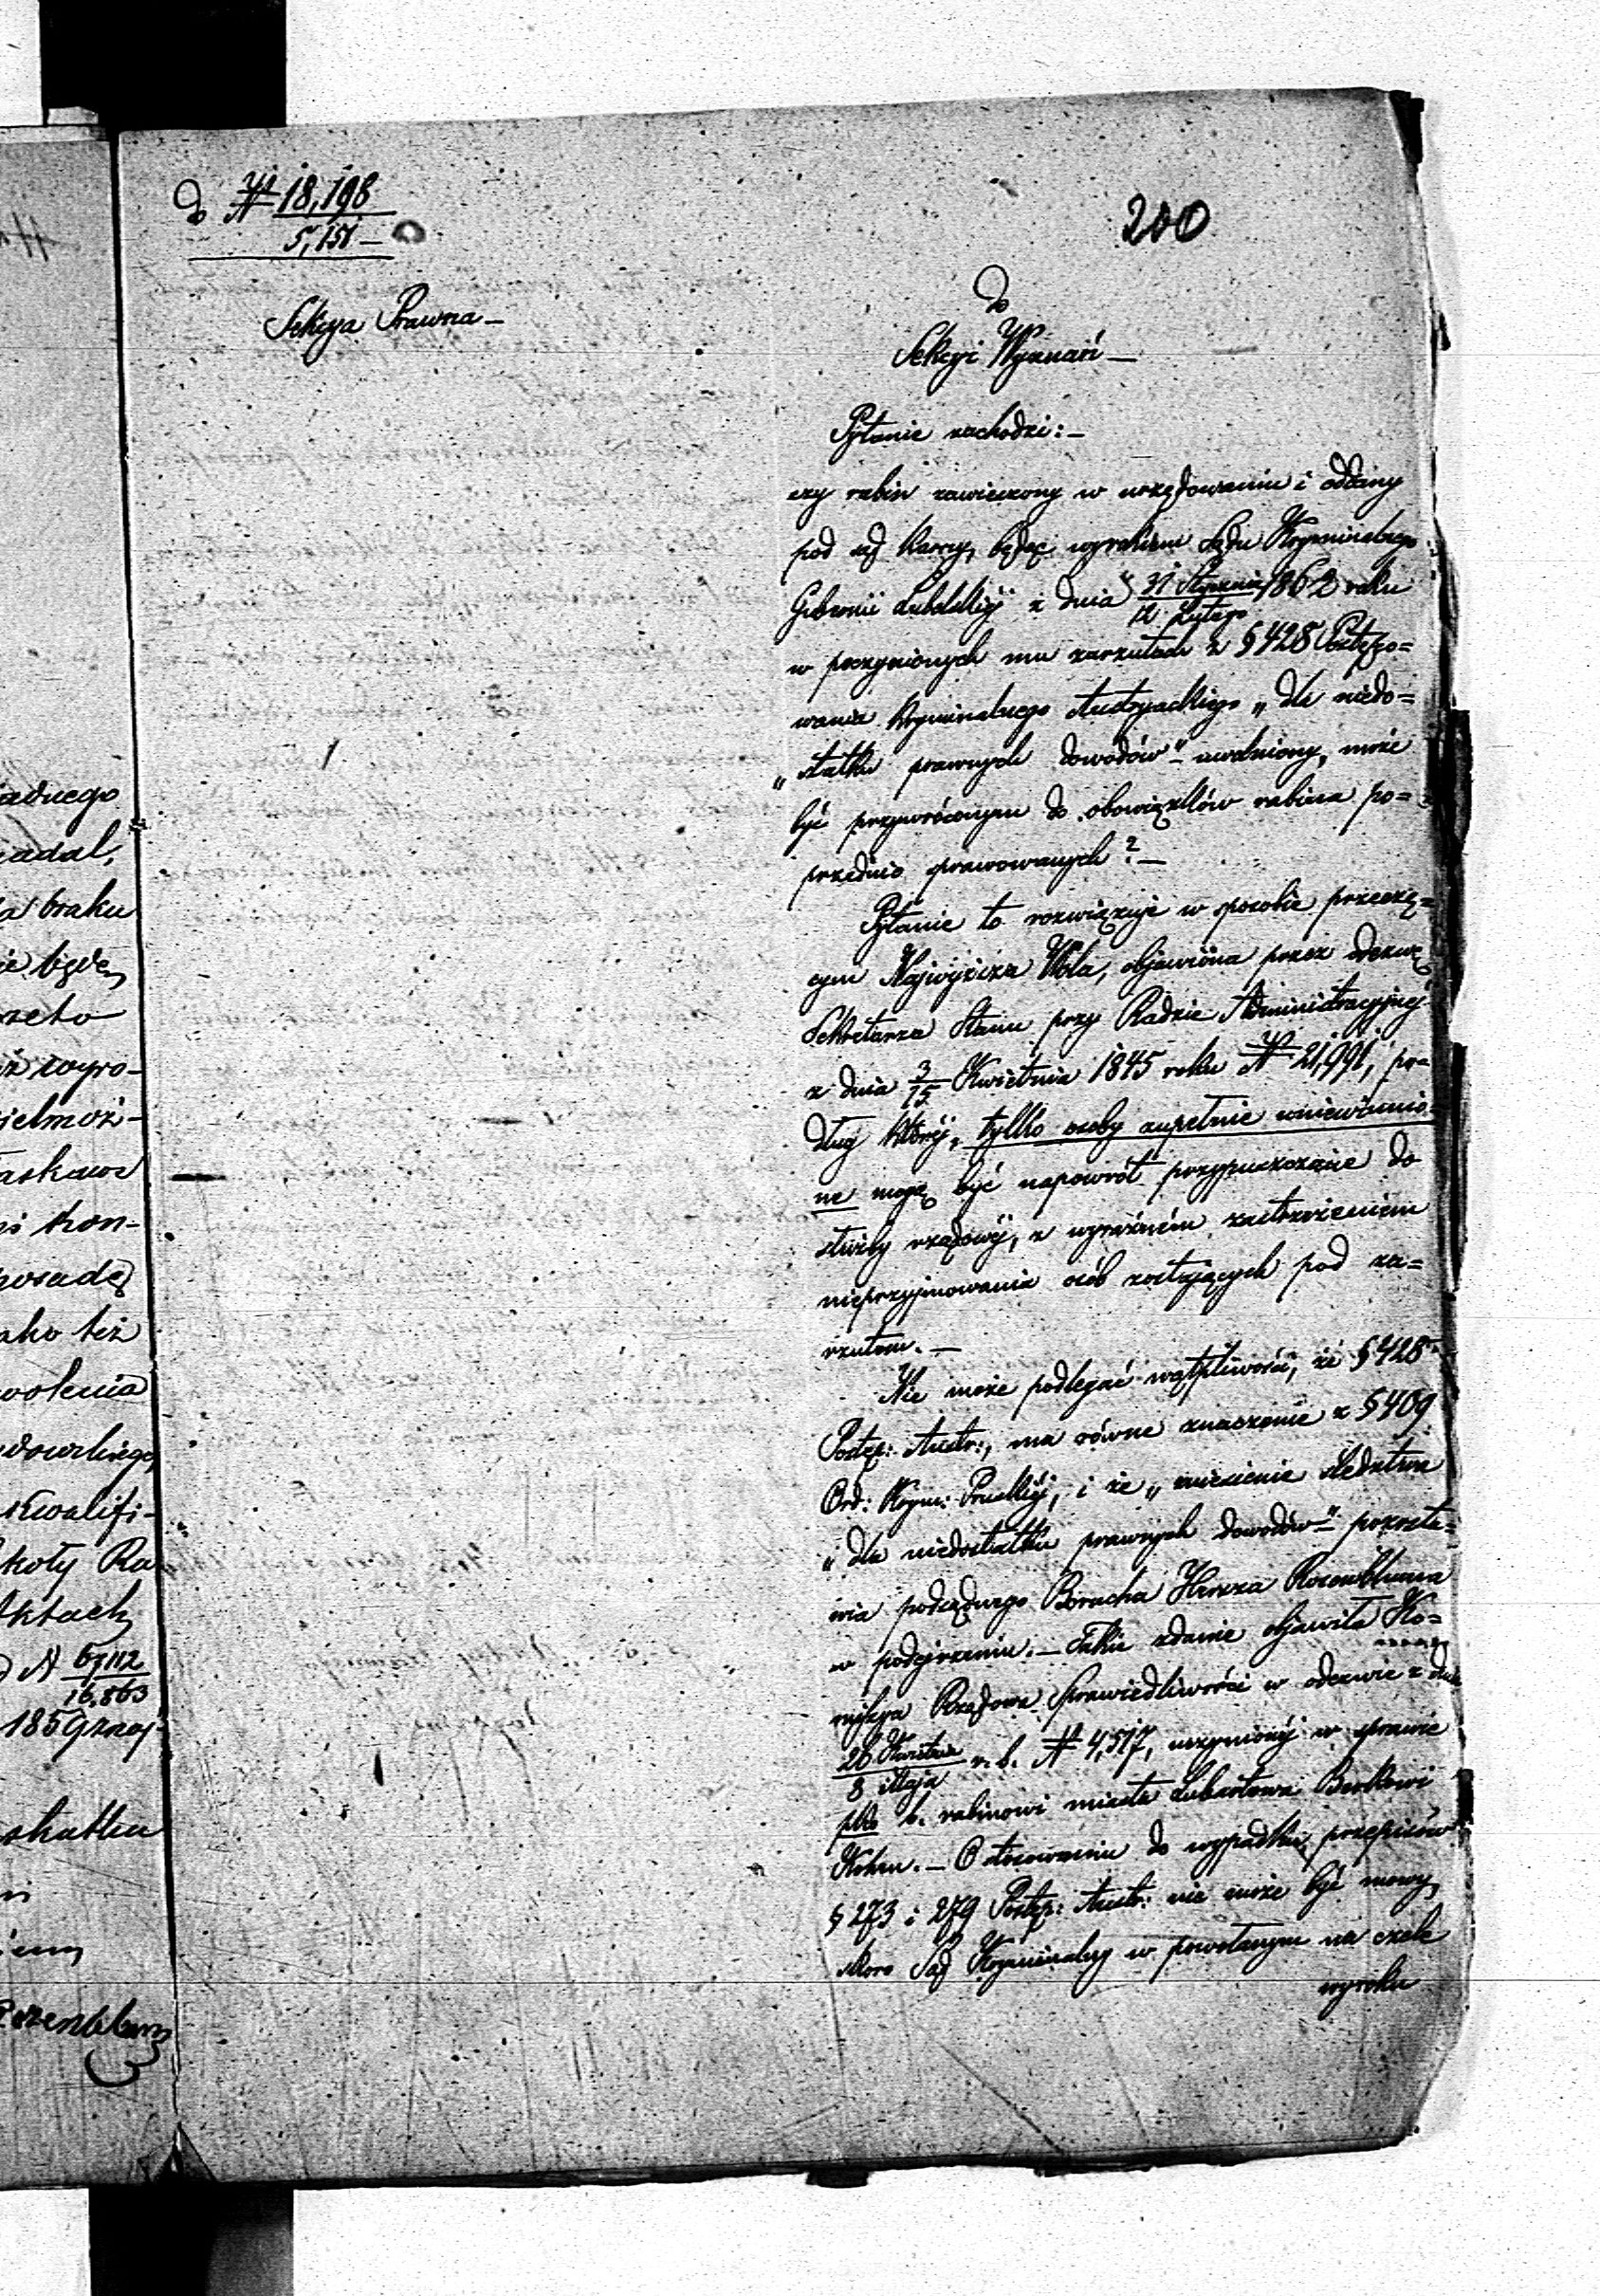 do № 18,198
5,151 —
200
Sekcya Prawna —
Do
Sekcyi Wyznań —
Pytanie zachodzi: —
czy rabin zawieszony w urzędowaniu i oddany
pod sąd karny, będąc wyrokiem Sądu Kryminalnego
Gubernii Lubelskiéj z dnia 31 Stycznia / 12 Lutego 1862 roku
w poczynionych mu zarzutach z § 428 Postępo=
wania Kryminalnego Austryackiego „dla niedo=
„statku prawnych dowodów" uwolniony, może
być przywróconym do obowiązków rabina po=
przednio sprawowanych? —
Pytanie to rozwiązuje w sposobie przeczą=
cym Najwyższa Wola, objawiona przez odezwę
Sekretarza Stanu przy Radzie Administracyjnéj
z dnia 3/15 Kwietnia 1845 roku № 21,991, po=
dług któréj, tylko osoby zupełnie uniewinnio=
ne mogą być napowrót przypuszczane do
służby rządowéj, z wyraźném zastrzeżeniem
nieprzyjmowania osób zostających pod za=
rzutem. —
Nie może podlegać wątpliwości, że § 428
Postęp: Austr:, ma równe znaczenie z § 409
Ord: Krym: Pruskiéj, i że „zniesienie śledztwa
„dla niedostatku prawnych dowodów" pozosta=
wia podsądnego Borucha Hersza Rozenbluma
w podejrzeniu. — Takie zdanie objawiła Ko=
misya Rządowa Sprawiedliwości w odezwie z dnia
26 Kwietnia / 8 Maja r. b. № 4,517, uczynionéj w sprawie
plko b. rabinowi miasta Lubartowa Berkowi
Kohen. — O stosowaniu do wypadku przepisów
§ 273 i 279 Postęp: Austr: nie może być mowy,
skoro Sąd Kryminalny w powołanym na czele
wyroku
iadnego
iadal,
la braku
ie będę
rzeto
iż wyro-
ielmoż-
askawe
i kon-
posadę
ako też
wolenia
dowskiego
Kwalifi-
koły Ra
Aktach
№ 67,112
16,863
1859 znaj-
skutku
Rozenblum